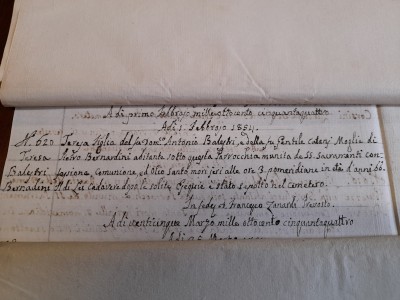 Adi primo Febbraio mille ottocento cinquantaquattro
Adi 1 Febbraio 1854.
N. 620 Teresa figlia del fu Antonio Balestri, e della fu Gentile Moglie di
Teresa Pietro Bernardini abitante sotto questa Parrocchia munita de SS. Sacramenti Con-
Balestri fessione, Comunione, ed Olio Santo morì jeri alle ore 3. pomeridiane in età d'anni 60.
Bernardini Il di Lei Cadavere dopo le solite Esequie è stato sepolto nel cimetero.
In fede Francesco Zanardi Prevosto
Adi venticinque Marzo mille ottocento cinquantaquattro
Adi 25 Marzo